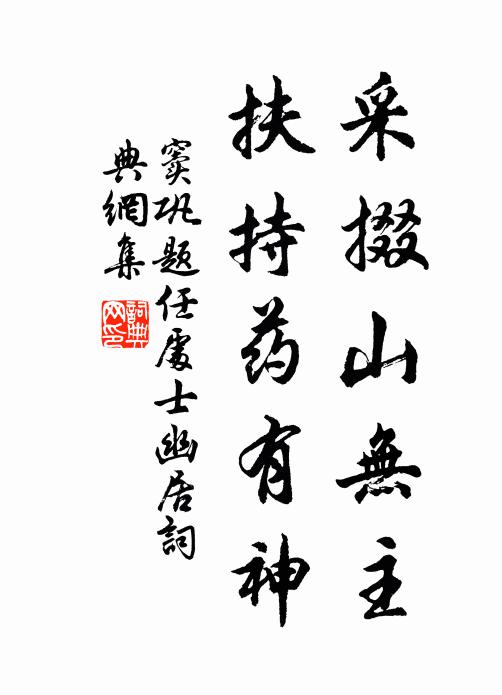 采掇山無主
扶持药有神
窦巩题任處士幽居詞
典網集
詞典網印